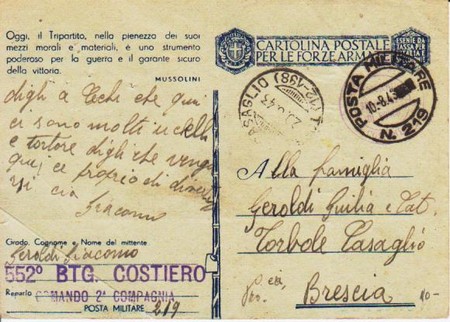 Oggi, il Tripartito, nella pienezza dei suoi
mezzi morali e materiali, è uno strumento
poderoso per la guerra e il garante sicuro
della vittoria.
MUSSOLINI
CARTOLINA POSTALE
PER LE FORZE ARMATE
ESENTE DA
TASSA PER
POSTA MILITARE
N. 219
digli a che qui
ci sono molti uccelli
e tortore digli che venga
qui ce proprio di
Giacomo
Grado, Cognome e Nome del mittente
Geroldi Giacomo
552° BTG. COSTIERO
Reparto COMANDO 2ª COMPAGNIA
POSTA MILITARE 219
Alla famiglia
Geroldi Giulia e Cat.
Torbole Casaglio
Brescia